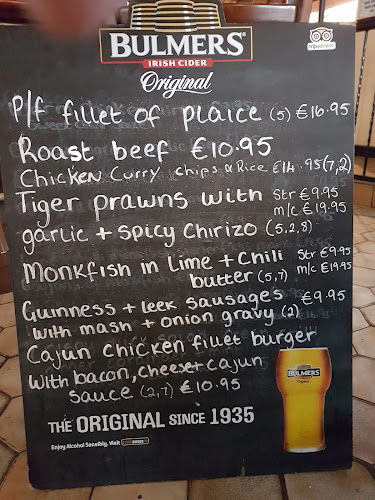 BULMERS
IRISH CIDER
Original
tripadvisor
P/f fillet of plaice (5) €16.95
Roast beef €10.95
Chicken Curry chips & Rice €14.95 (7,2)
Tiger prawns with Str €9.95
m/c €19.95
garlic + spicy chirizo (5,2,8)
Monkfish in Lime + Chili Str €9.95
butter (5,7) m/c €19.95
Guinness + leek sausages €9.95
with mash + onion gravy (2)
Cajun chicken fillet burger
with bacon, cheese + cajun
sauce (2,7) €10.95
BULMERS
Original
THE ORIGINAL SINCE 1935
Enjoy Alcohol Sensibly. Visit